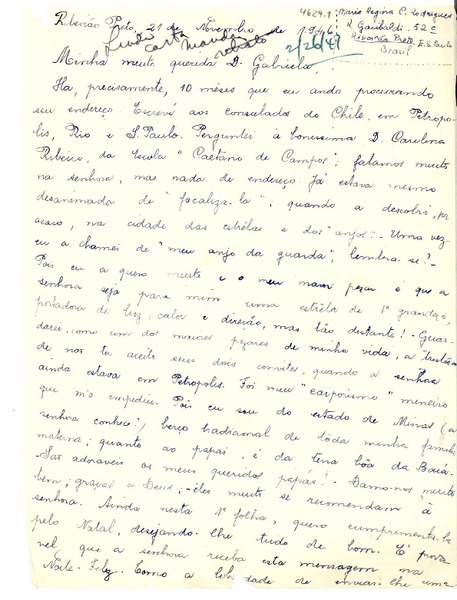 Ribeirão Preto, 21 de Novembro de 1946.
4629-1 Maria Regina C. Rodrigues
R. Garibaldi, 52
Ribeirão Preto, E. S. Paulo
Brasil
Linda carta mandar retrato
2/26/47
Minha muito querida D. Gabriela.
Ha, precisamente, 10 mêses que eu ando procurando
seu endereço. Escreví aos consulados do Chile, em Petropo-
lis, Rio e S. Paulo. Perguntei à bonissima D. Carolina
Ribeiro, da Escola "Caetano de Campos"; falamos muito
na senhora, mas nada de endereço. Já estava mesmo
desanimada de "focaliza-la"; quando a descobrí, por
acaso, na cidade das estrêlas e dos "anjos"! - Uma vez
eu a chamei de "meu anjo da guarda"; lembra-se? -
Pois eu a quero muito e o meu maior pezar é que a
senhora seja para mim uma estrêla de 1ª grandeza,
portadora de luz, calor e direção, mas tão distante! - Guar-
darei, como um dos maiores pezares de minha vida, a tristeza
de não ter aceito seus dois convites, quando a senhora
ainda estava em Petropolis. Foi meu "caipirismo" mineiro
que m'o impediu. Pois eu sou do estado de Minas (a
senhora conhece?), berço tradicional de tôda minha familia
materna; quanto ao papai, é da terra bôa da Baía.
São adoraveis os meus queridos papás! - Damo-nos muito
bem; graças a Deus; - êles muito se recomendam à
senhora. Ainda nesta 1ª folha, quero cumprimenta-la
pelo Natal, desejando-lhe tudo de bom. É prova-
vel que a senhora receba esta mensagem na
Noite-Feliz. Tomo a liberdade de enviar-lhe uma